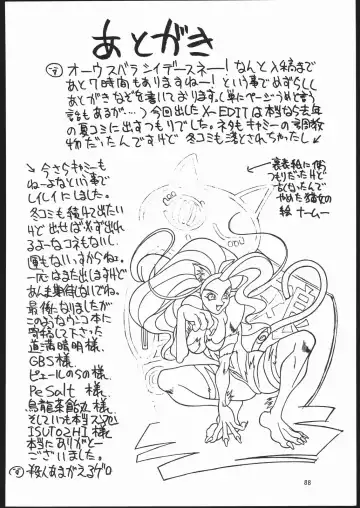 あとがき
オーウスバラシイデースネー! なんと入稿まで
あと7時間もありますねー! という事でめずらしく
あとがきなぞを書いております。(単にページうめと言う
話もあるが…) 今回出したX-EDITは本なら去年
の夏コミに出すつもりでした。ネタもキャミーの
物だったんですけど 冬コミも落とされちゃったし
↓今さらキャミーも
ねーよなという事で
シイレイにしました。
冬コミも続けて出たい
けど出せば必ず出れ
るよーなコネもないし
運もないっすからねェ。
一応はまた出しますけど
あんま期待しないでね。
最後になりましたが
このようなウンコ本に
して下さった
道満晴明様、
GBS様、
ピュールのSの様、
Pe Salt 様、
烏龍茶
そしていつも本当スマヌ
ISUTOSHI様、
本当にありがとー
ございました。
殺人あまがえるゲロ
裏表紙に使
つもりだったけど
よくなったんで
やめた猫女の
絵 ナームー
88